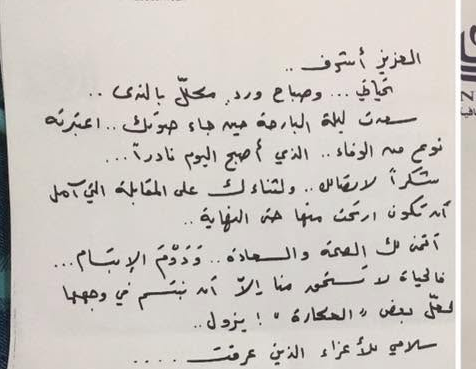 العزيز أشرف ..
تحياتي ... وصباح ورد، محمّل بالندى ..
سعدت ليلة البارحة حين جاء صوتك .. اعتبرته
نوع من الوفاء .. الذي أصبح اليوم نادراً ...
شكراً لاتصالك .. ولثناءك على المقابلة التي آمل
أن تكون ارتحت منها حتى النهاية ..
أتمنى لك الصحة والسعادة .. وَدَوْمَ الإبتسام ...
فالحياة لا تستحق منا إلاّ أن نبتسم في وجهها
لعلّ بعض "العكارة" ! يزول ..
سلامي للأعزاء الذين عرفت ....